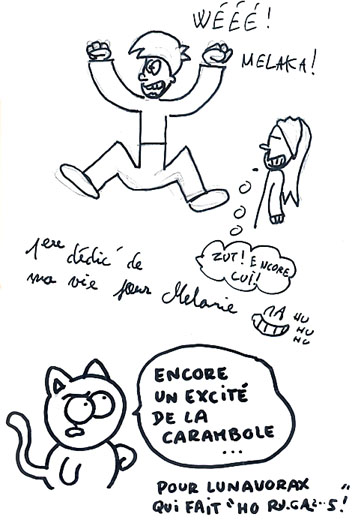 WÉÉÉ!
MELAKA!
ZUT! ENCORE
LUI!
1ere dédic' de
ma vie pour Melanie
HU
HU
HU
ENCORE
UN EXCITÉ
DE LA
CARAMBOLE
...
POUR LUNAVORAX
QUI FAIT "HO